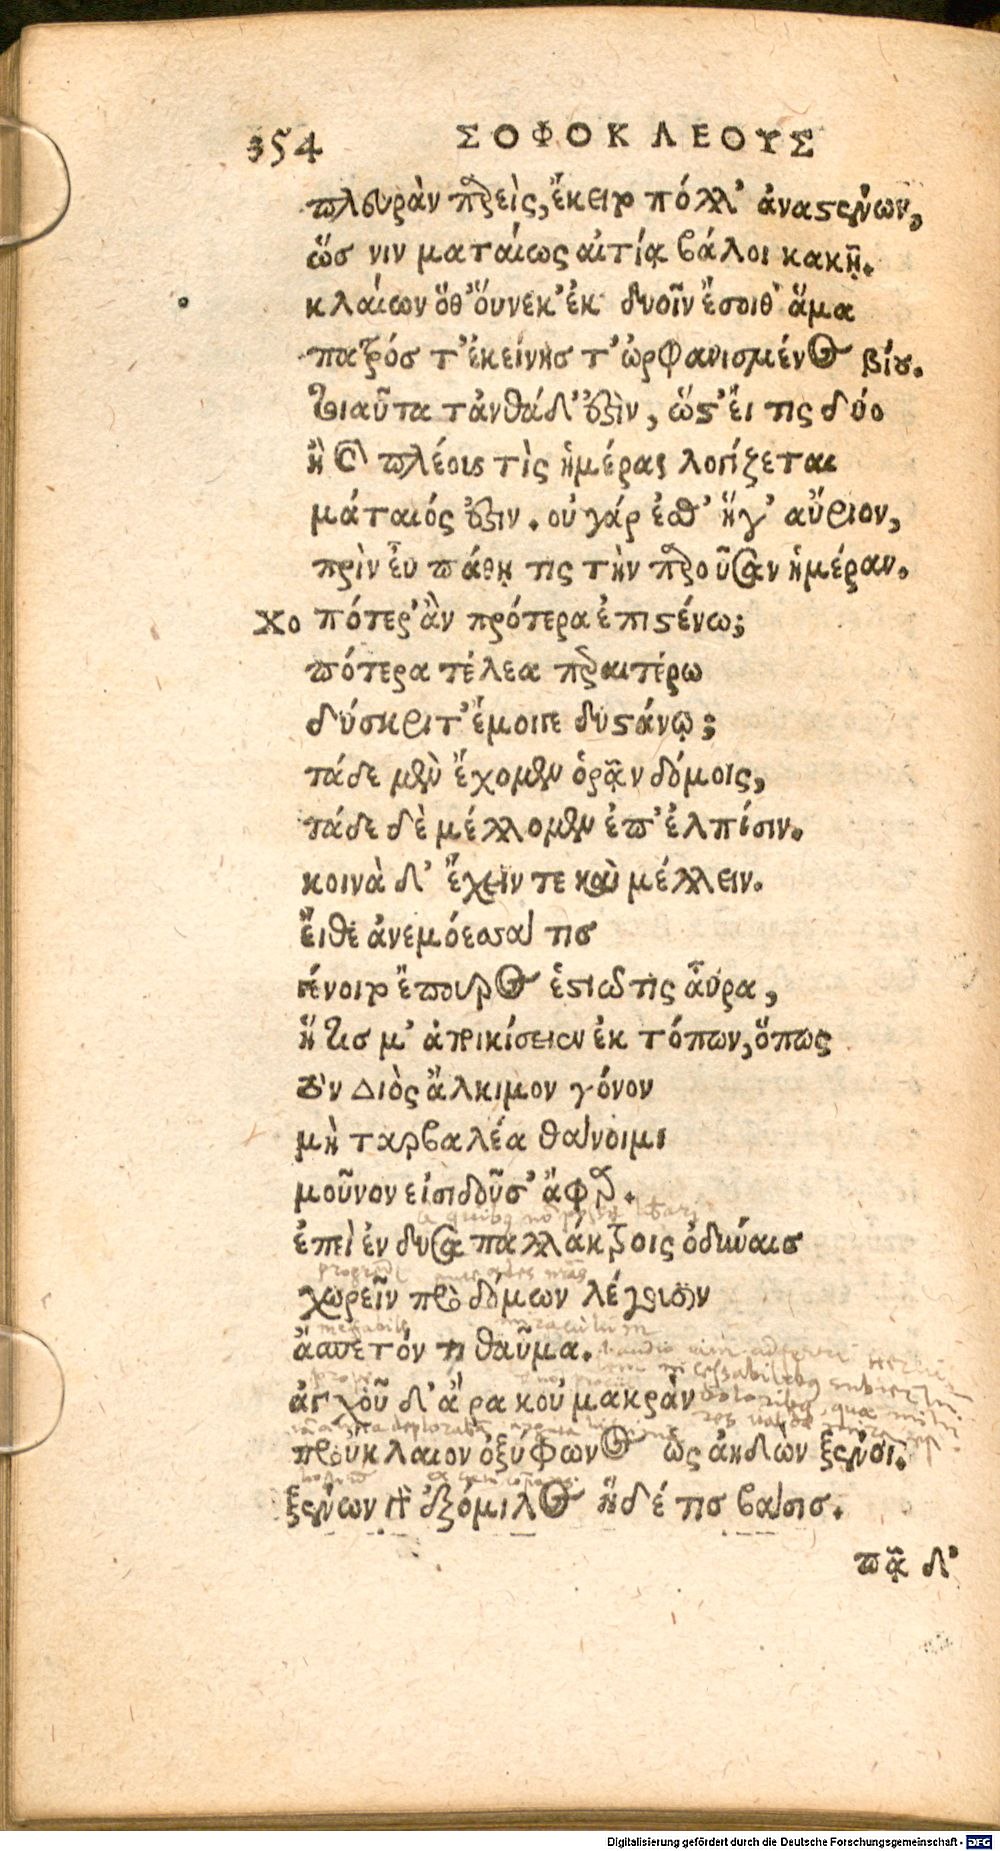 354 ΣΟΦΟΚΛΕΟΥΣ
πλευρὰν παρεὶς, ἔκειτο πόλλ' ἀναστένων,
ὥς νιν ματαίως αἰτίᾳ βάλοι κακῇ.
κλαίων ὅθ' ὅυνεκ' ἐκ δυοῖν ἔσοιθ' ἅμα
πατρός τ' ἐκείνης τ' ὠρφανισμένος βίου.
τοιαῦτα τἀνθάδ' ἐστὶν, ὥστ' ἔι τις δύο
ἢ καὶ πλέους τὶς ἡμέρας λογίζεται
μάταιός ἐστιν. οὐ γάρ ἐσθ' ἥγ' αὔριον,
πρὶν ἐυ πάθῃ τις τὴν παροῦσαν ἡμέραν.
ΧΟ πότερ' ἂν πρότερα ἐπιστένω;
πότερα τέλεα περαιτέρω
δύσκριτ' ἔμοιγε δυστάνῳ;
τάδε μὲν ἔχομεν ὁρᾷν δόμοις,
τάδε δὲ μέλλομεν ἐπ' ἐλπίσιν.
κοινὰ δ' ἔχειν τε καὶ μέλλειν.
ἔιθε ἀνεμόεσσά τισ
γένοιτο ἔπουρος ἑστιῶτις ἄυρα,
ἥτις μ' ἀποικίσειεν ἐκ τόπων, ὅπως
τὸν Διὸς ἄλκιμον γόνον
μὴ ταρβαλέα θάνοιμι
μοῦνον εἰσιδοῦσ' ἄφαρ.
ἐπεὶ ἐν δυσαπαλλάκτοις ὀδύναισ
χωρεῖν πρὸ δόμων λέγουσιν
ἄσπετόν τι θαῦμα.
ἀγχοῦ δ' ἄρα κοὐ μακρὰν
προύκλαιον ὀξύφωνος ὡς ἀηδὼν ξένοι.
ξένων γὰρ ἐξόμιλος ἥδέ τισ βάσισ.
πᾷ δ'
Digitalisierung gefördert durch die Deutsche Forschungsgemeinschaft - DFG